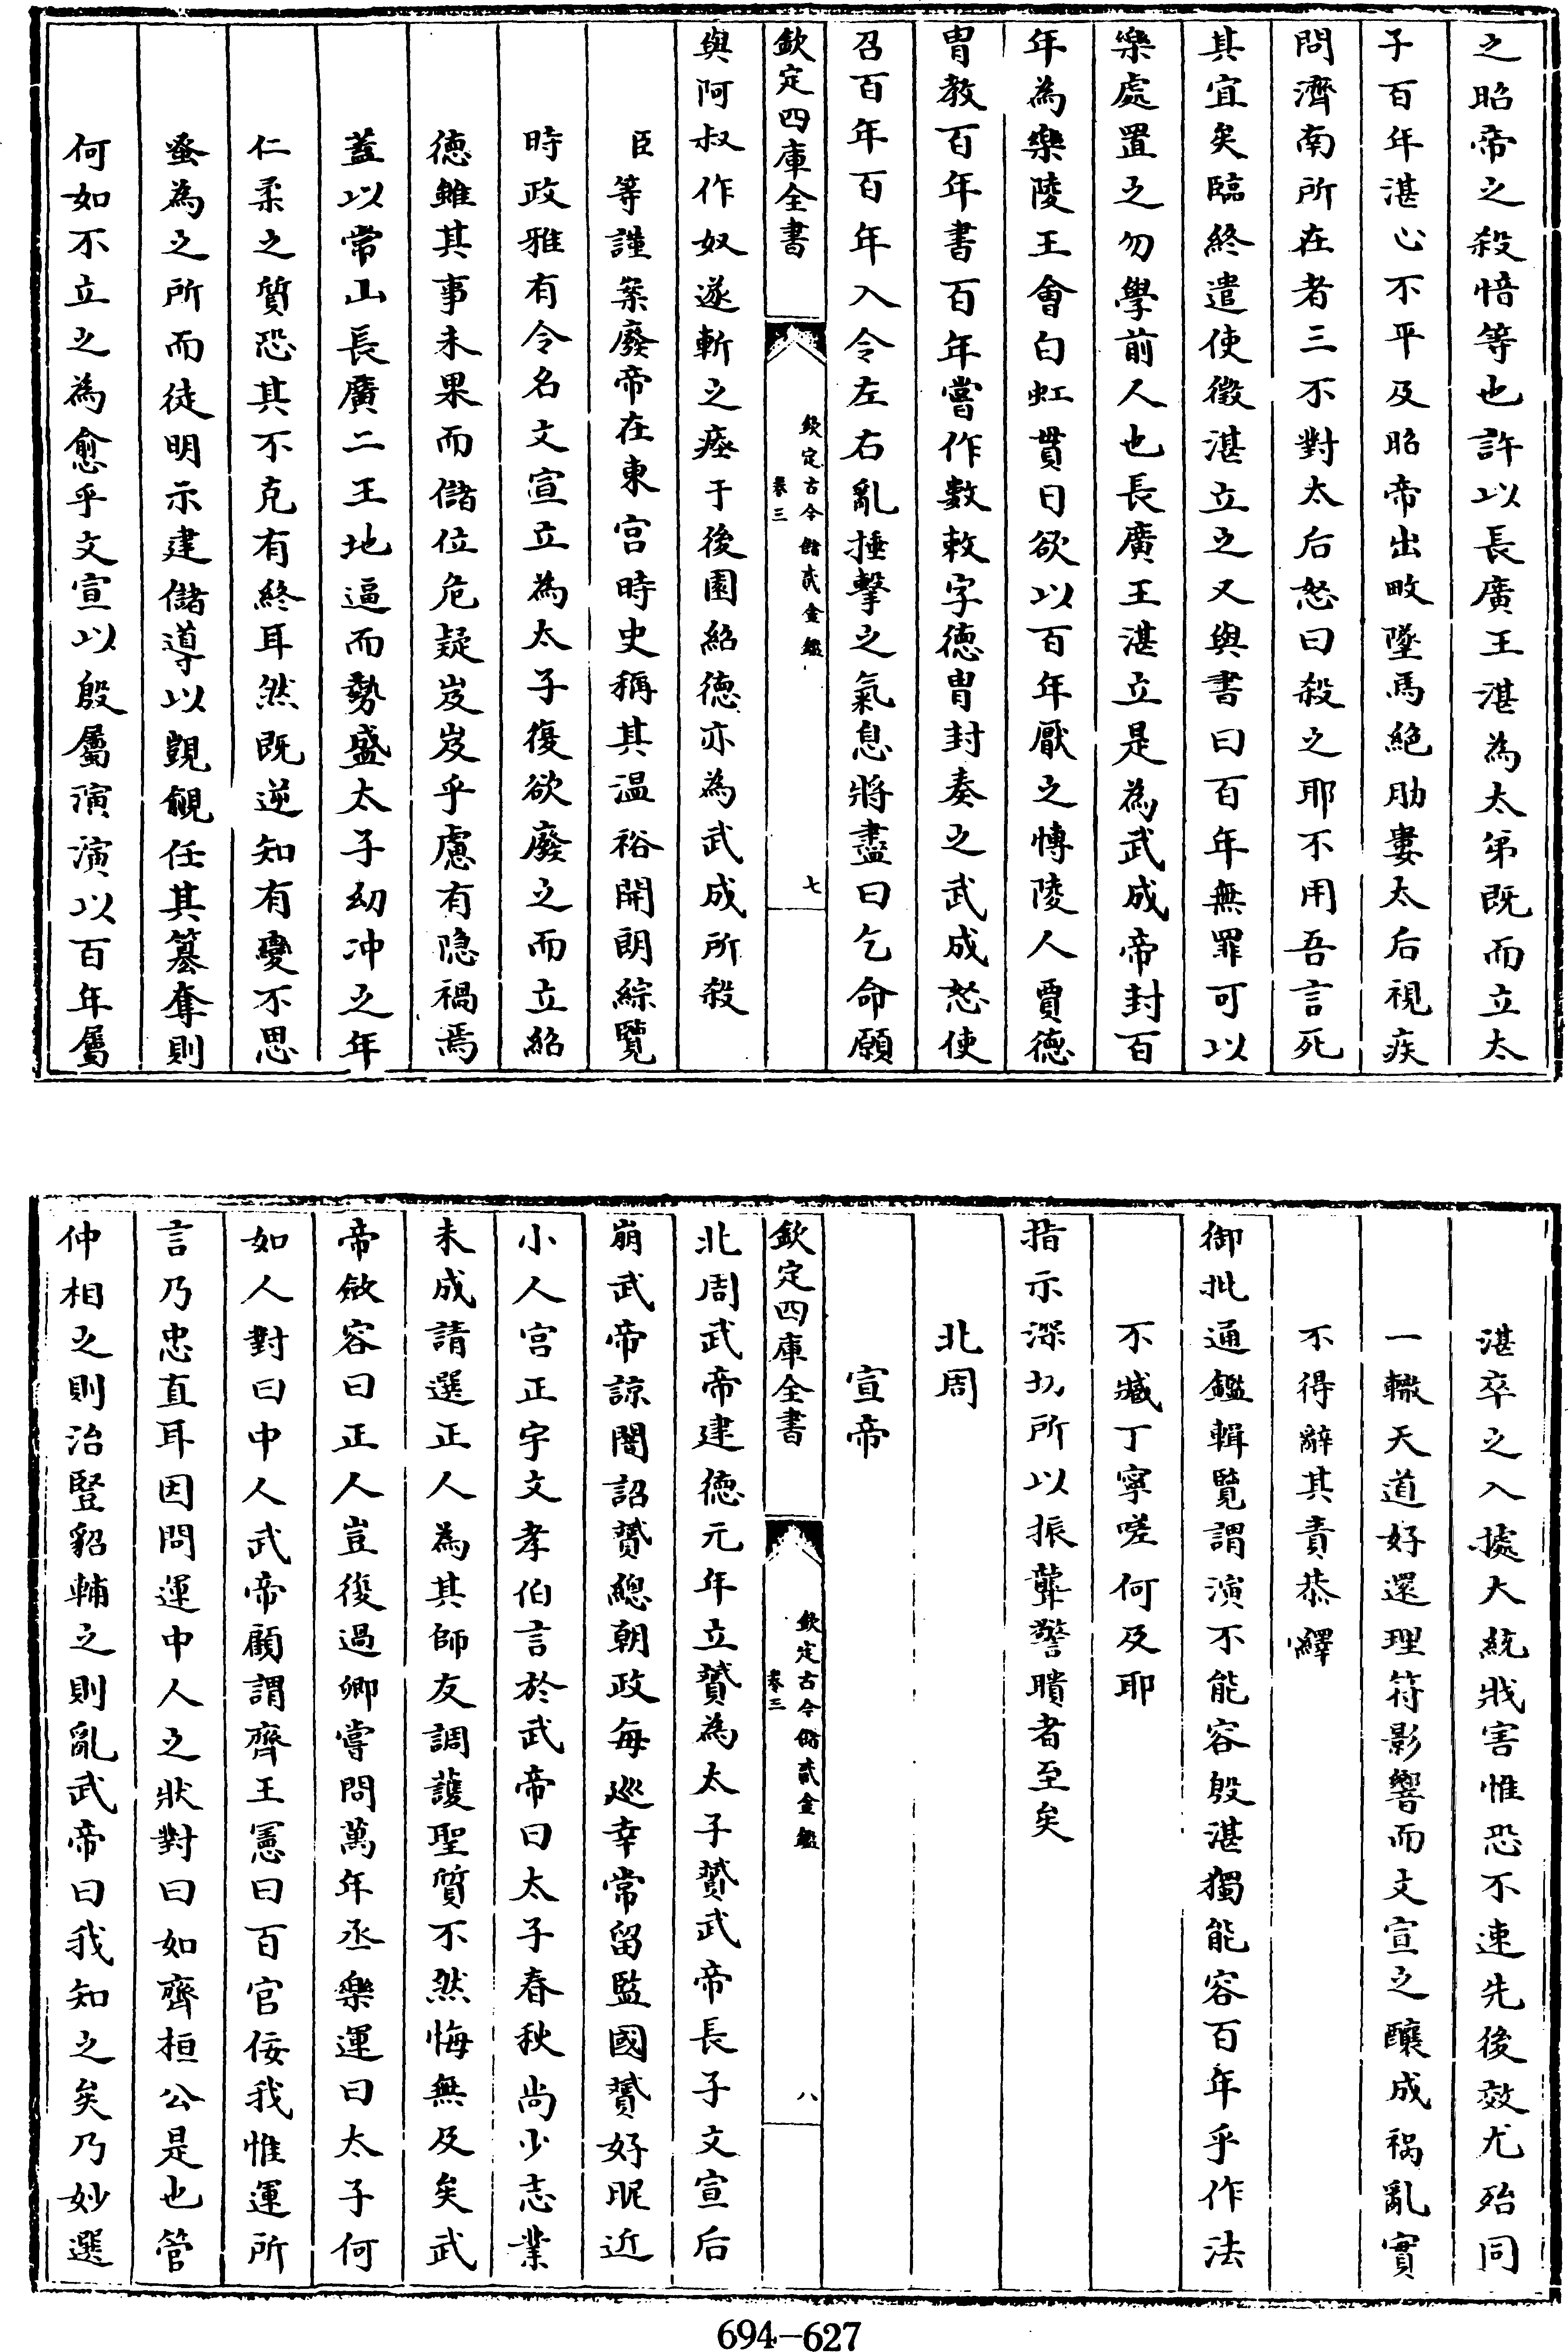 之昭帝之殺愔等也許以長廣王湛為太弟既而立太
子百年湛心不平及昭帝出畋墜馬絶肋婁太后視疾
問濟南所在者三不對太后怒曰殺之耶不用吾言死
其宜矣臨終遣使徵湛立之又與書曰百年無罪可以
樂處置之勿學前人也長廣王湛立是為武成帝封百
年為樂陵王會白虹貫日欲以百年厭之愽陵人賈德
胄教百年書百年嘗作數敕字德胄封奏之武成怒使
召百年百年入令左右亂捶擊之氣息將盡曰乞命願
欽定四庫全書
欽定古今儲貳金鑑
卷三
七
與阿叔作奴遂斬之瘞于後園紹德亦為武成所殺
臣等謹案廢帝在東宮時史稱其温裕開朗綜覽
時政雅有令名文宣立為太子復欲廢之而立紹
德雖其事未果而儲位危疑岌岌乎慮有隐禍焉
蓋以常山長廣二王地逼而勢盛太子幼冲之年
仁柔之質恐其不克有終耳然既逆知有變不思
蚤為之所而徒明示建儲導以覬覦任其簒奪則
何如不立之為愈乎文宣以殷屬演演以百年屬
湛卒之入𢴃大統戕害惟恐不速先後效尤殆同
一轍天道好還理符影響而文宣之釀成禍亂實
不得辭其責恭繹
御批通鑑輯覽謂演不能容殷湛獨能容百年乎作法
不臧丁寧嗟何及耶
指示深切所以振聾警聵者至矣
北周
宣帝
欽定四庫全書
欽定古今儲貳金鑑
卷三
八
北周武帝建德元年立贇為太子贇武帝長子文宣后
崩武帝諒闇詔贇總朝政每巡幸常留監國贇好昵近
小人宮正宇文孝伯言於武帝曰太子春秋尚少志業
未成請選正人為其師友調護聖質不然悔無及矣武
帝斂容曰正人豈復過卿嘗問萬年丞樂運曰太子何
如人對曰中人武帝顧謂齊王憲曰百官佞我惟運所
言乃忠直耳因問運中人之狀對曰如齊桓公是也管
仲相之則治豎貂輔之則亂武帝曰我知之矣乃妙選
694-627